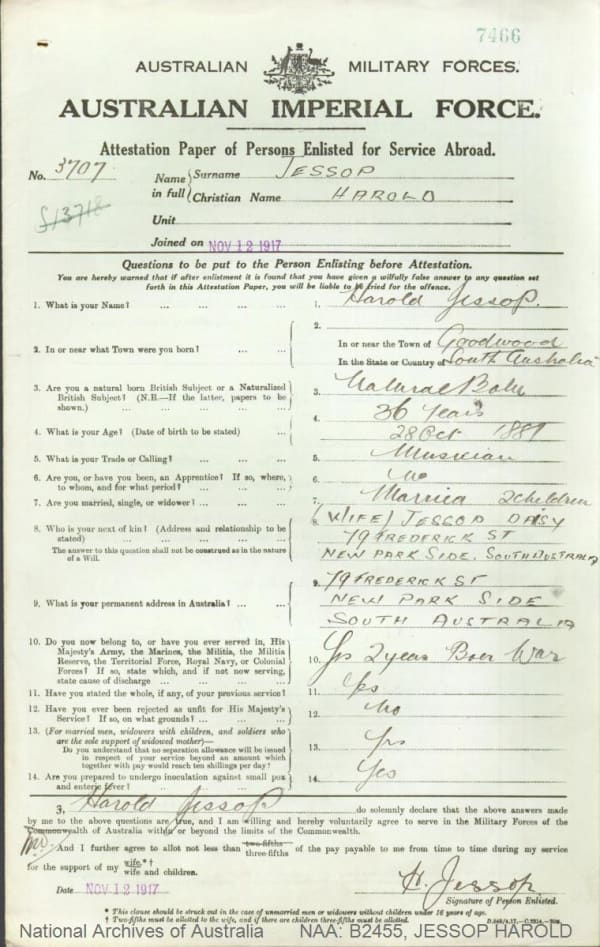 7466
AUSTRALIAN MILITARY FORCES.
AUSTRALIAN IMPERIAL FORCE.
Attestation Paper of Persons Enlisted for Service Abroad.
No. 3707 Name in full Surname JESSOP
Christian Name HAROLD
Unit
Joined on NOV 12 1917
Questions to be put to the Person Enlisting before Attestation.
You are hereby warned that if after enlistment it is found that you have given a wilfully false answer to any question set
forth in this Attestation Paper, you will be liable to be tried for the offence.
1. What is your Name? ... ... ... ... 1. Harold Jessop.
2. In or near what Town were you born? ... ... 2. In or near the Town of Goodwood
In the State or Country of South Australia
3. Are you a natural born British Subject or a Naturalized
British Subject? (N.B.—If the latter, papers to be
shown.) ... ... ... ... 3. Natural Born
4. What is your Age? (Date of birth to be stated) ... 4. 36 Years
28 Oct 1881
5. What is your Trade or Calling? ... ... ... 5. Musician
6. Are you, or have you been, an Apprentice? If so, where,
to whom, and for what period? ... ... ... 6. No
7. Are you married, single, or widower? ... ... ... 7. Married 2 children
8. Who is your next of kin? (Address and relationship to be
stated) ... ... ... ... 8. (WIFE) JESSOP DAISY
The answer to this question shall not be construed as in the nature
of a Will.
79 FREDERICK ST
NEW PARK SIDE. SOUTH AUSTRALIA
9. What is your permanent address in Australia? ... ... 9. 79 FREDERICK ST
NEW PARK SIDE
SOUTH AUSTRALIA
10. Do you now belong to, or have you ever served in, His
Majesty's Army, the Marines, the Militia, the Militia
Reserve, the Territorial Force, Royal Navy, or Colonial
Forces? If so, state which, and if not now serving,
state cause of discharge ... ... ... 10. Yes 2 years Boer War
11. Have you stated the whole, if any, of your previous service? 11. Yes
12. Have you ever been rejected as unfit for His Majesty's
Service? If so, on what grounds? ... ... ... 12. No
13. (For married men, widowers with children, and soldiers who
are the sole support of widowed mother)—
Do you understand that no separation allowance will be issued
in respect of your service beyond an amount which
together with pay would reach ten shillings per day? 13. Yes
14. Are you prepared to undergo inoculation against small pox
and enteric fever? ... ... ... ... 14. Yes
I, Harold Jessop do solemnly declare that the above answers made
by me to the above questions are true, and I am willing and hereby voluntarily agree to serve in the Military Forces of the
Commonwealth of Australia within or beyond the limits of the Commonwealth.
And I further agree to allot not less than two-fifths three-fifths of the pay payable to me from time to time during my service
for the support of my wife.*† wife and children.
Date NOV 12 1917
H. Jessop
Signature of Person Enlisted.
* This clause should be struck out in the case of unmarried men or widowers without children under 16 years of age.
† Two-fifths must be allotted to the wife, and if there are children three-fifths must be allotted.
National Archives of Australia NAA: B2455, JESSOP HAROLD